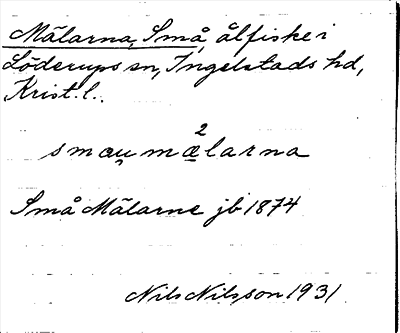 Mälarna, Små, ålfiske i
Löderups sn, Ingelstads hd,
Krist. l.
2
smau̯mälarna
Små Mälarne jb 1874
Nils Nilsson 1931